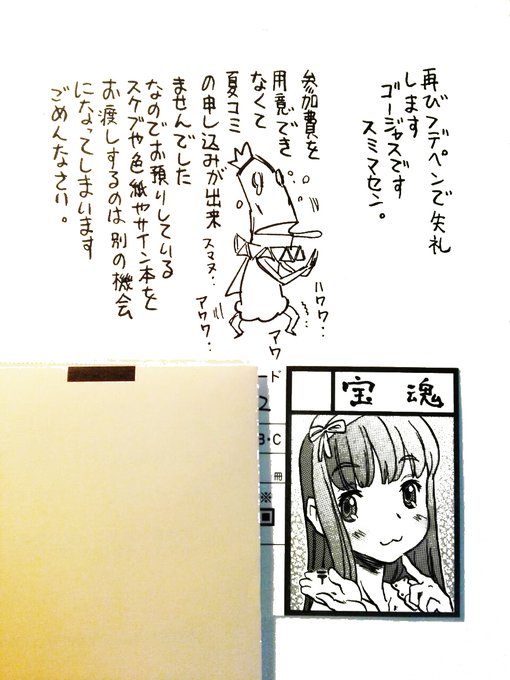 再びフデペンで失礼
します
ゴージャスです
スミマセン。
参加費を
用意でき
なくて
夏コミ
の申し込みが出来
ませんでした
なのでお預りしている
スケブや色紙やサイン本を
お渡しするのは別の機会
になってしまいます
ごめんなさい。
スマヌ…
アワワ…
ハワワ…
アワワ
ード
2
B・C
冊
※
宝魂